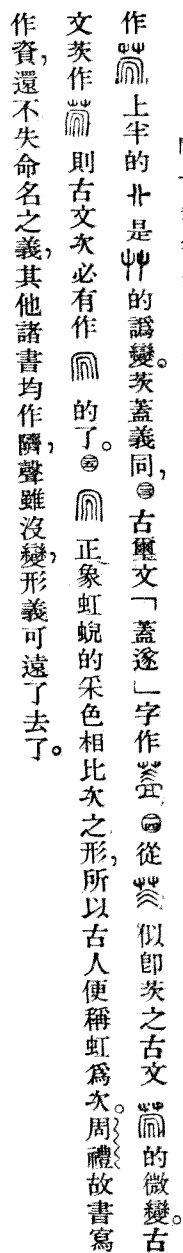 作上半的是的譌變。茨蓋義同，㊂古璽文「蓋遂」字作㊃從似卽茨之古文的微變。古
文茨作則古文次必有作的了。㊄正象虹蜺的采色相比次之形，所以古人便稱虹爲次。周禮故書寫
作資，還不失命名之義，其他諸書均作隮，聲雖沒變，形義可遠了去了。